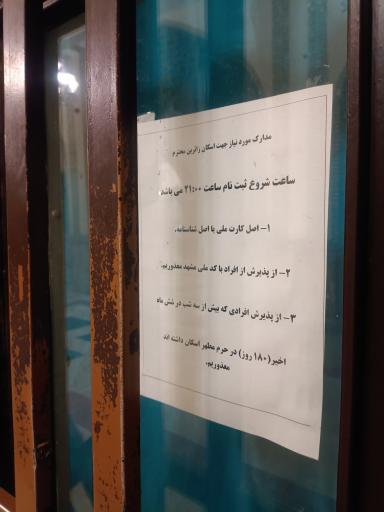 مدارک مورد نیاز جهت اسکان زائرین محترم
ساعت شروع ثبت نام ساعت ۲۱:۰۰ می باشد
۱- اصل کارت ملی یا اصل شناسنامه.
۲- از پذیرش از افراد با کد ملی مشهد معذوریم.
۳- از پذیرش افرادی که بیش از سه شب در شش ماه
اخیر(۱۸۰ روز) در حرم مطهر اسکان داشته اند
معذوریم.